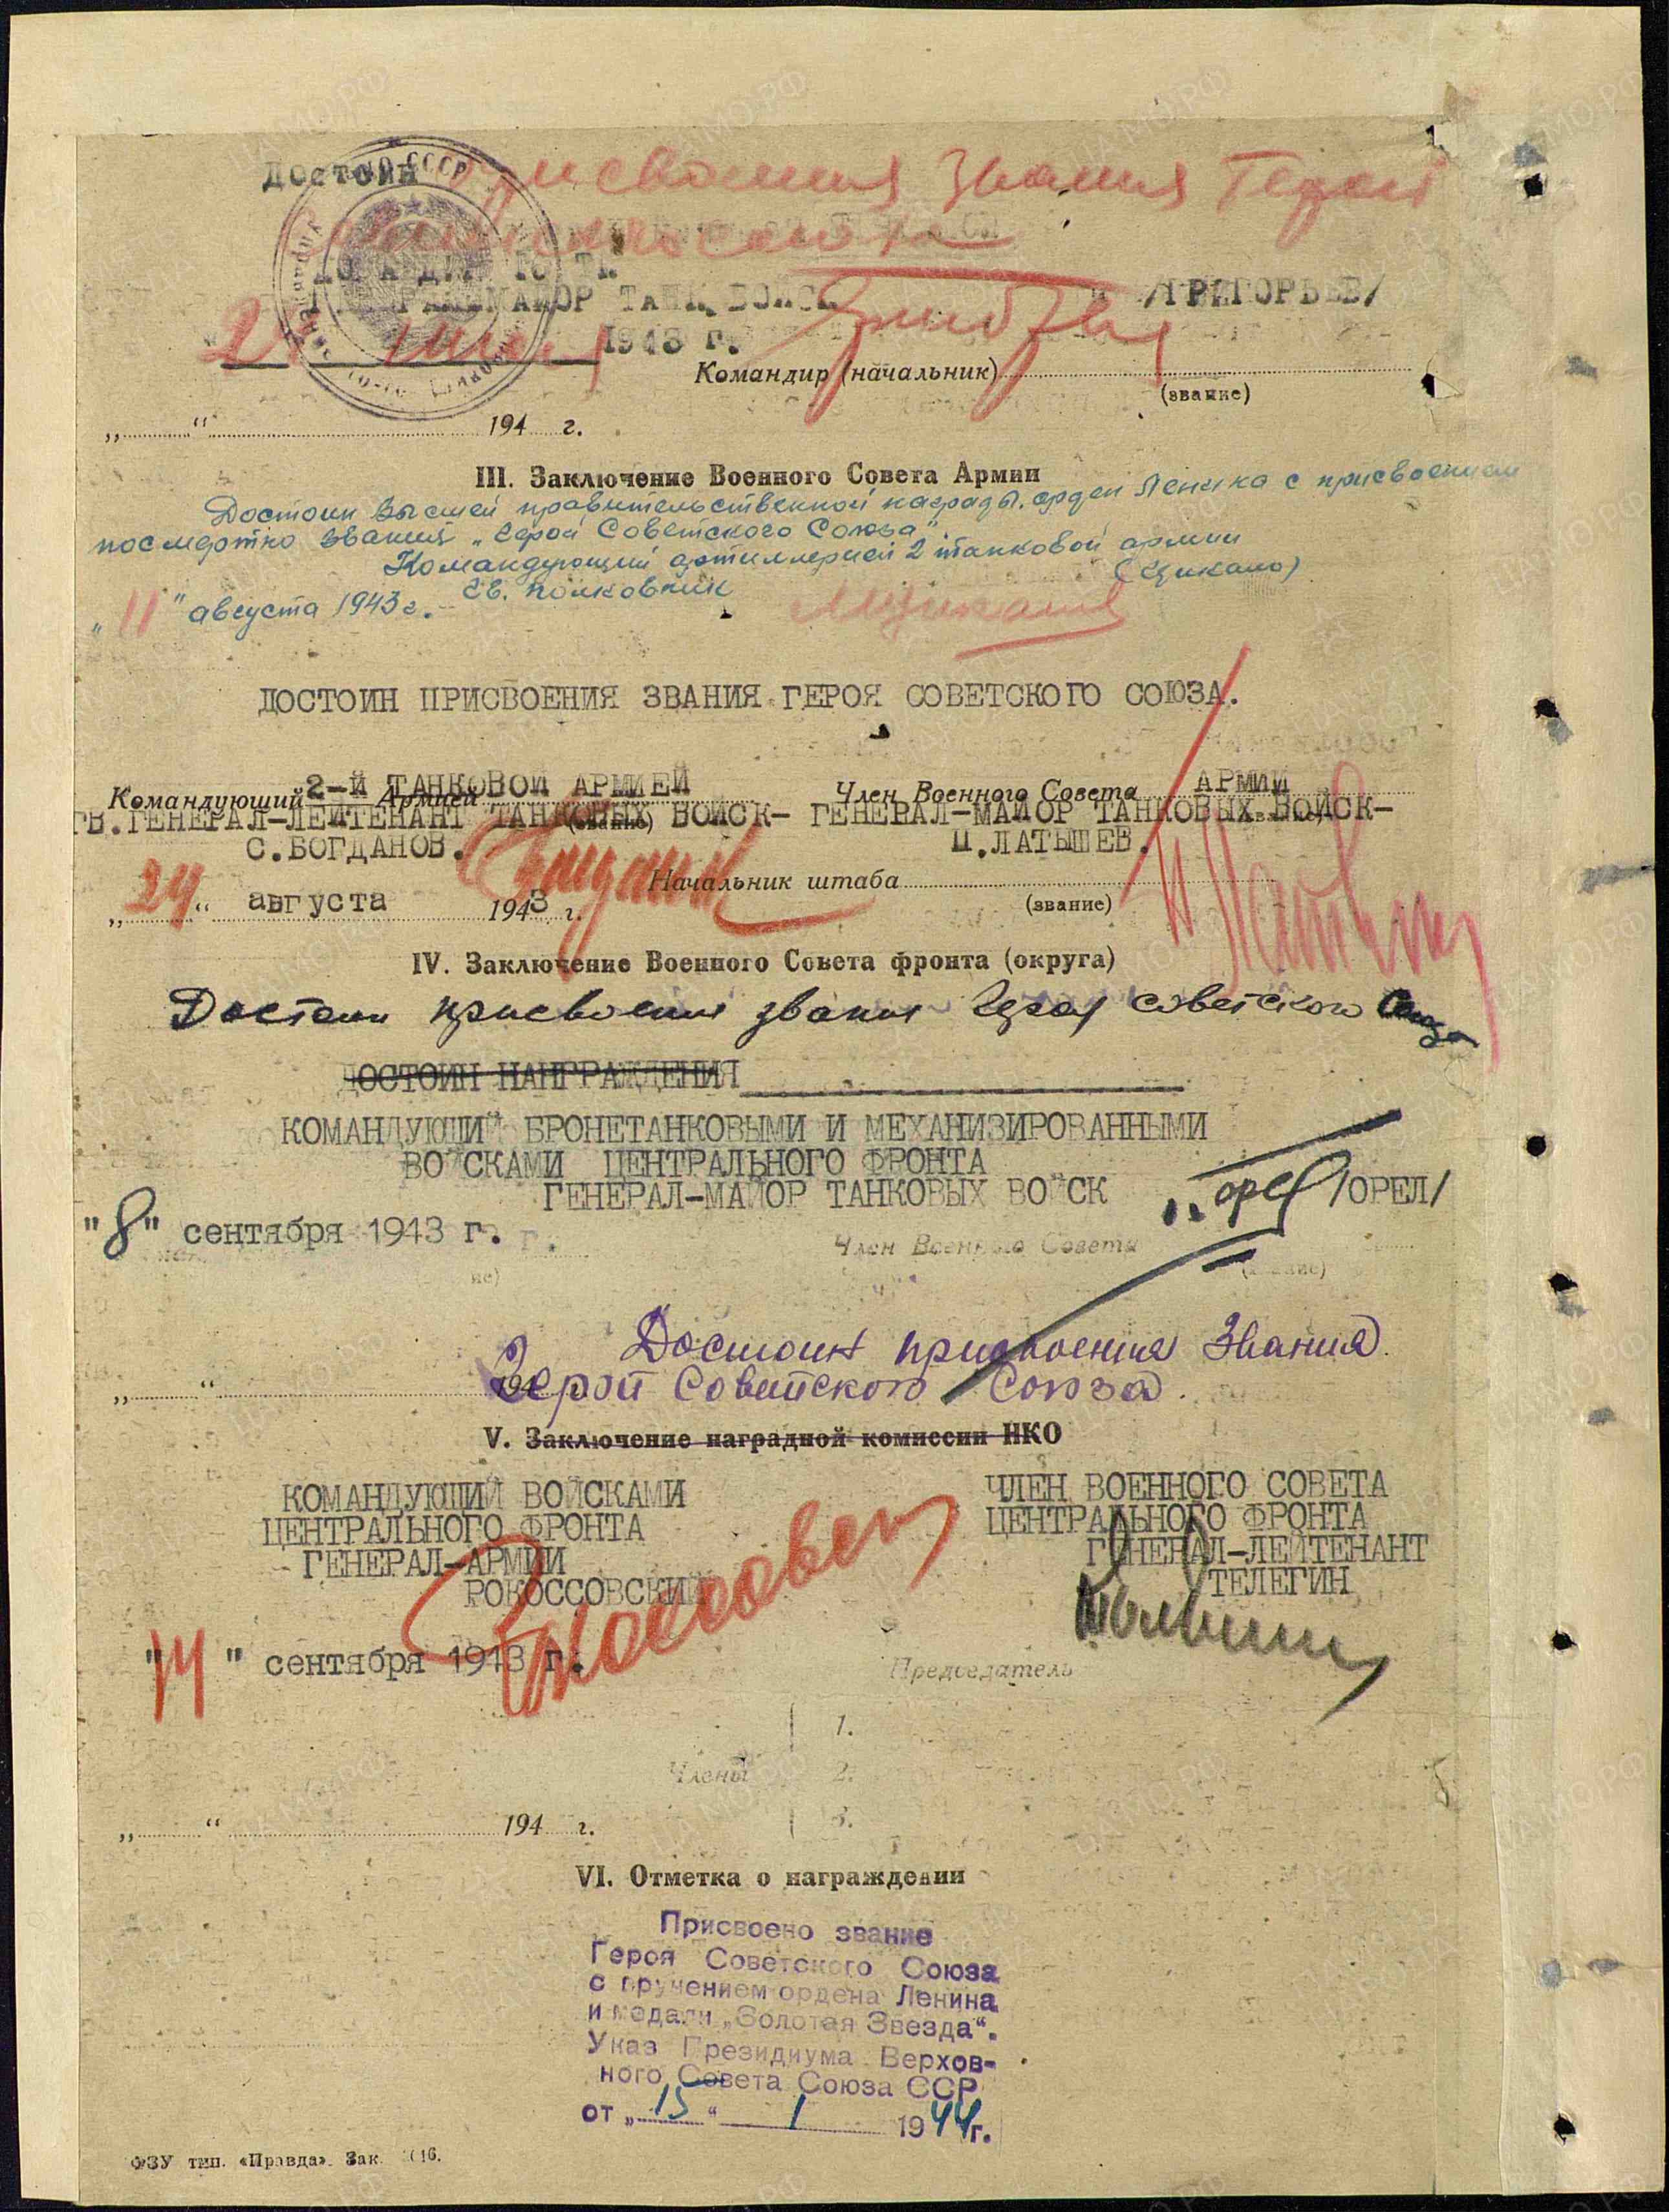 Достоин присвоения звания Герой
Советского Союза
ГЕНЕРАЛ-МАЙОР ТАНК. ВОЙСК /ГРИГОРЬЕВ/
1943 г.
Командир (начальник)
(звание)
„ “ 194 г.
III. Заключение Военного Совета Армии
Достоин высшей правительственной награды. орден Ленина с присвоением
посмертно звания „Герой Советского Союза“.
Командующий артиллерией 2 танковой армии
Гв. полковник (Цикало)
„11“ августа 1943 г.
ДОСТОИН ПРИСВОЕНИЯ ЗВАНИЯ ГЕРОЯ СОВЕТСКОГО СОЮЗА.
Командующий 2-Й ТАНКОВОЙ АРМИЕЙ Армией Член Военного Совета АРМИИ
ГВ.ГЕНЕРАЛ-ЛЕЙТЕНАНТ ТАНКОВЫХ ВОЙСК- ГЕНЕРАЛ-МАЙОР ТАНКОВЫХ ВОЙСК-
(звание) (звание)
С.БОГДАНОВ. П.ЛАТЫШЕВ.
Начальник штаба
(звание)
„24“ августа 1943 г.
IV. Заключение Военного Совета фронта (округа)
Достоин присвоения звания Героя Советского Союза
ДОСТОИН НАНГРАЖДЕНИЯ
КОМАНДУЮЩИЙ БРОНЕТАНКОВЫМИ И МЕХАНИЗИРОВАННЫМИ
ВОЙСКАМИ ЦЕНТРАЛЬНОГО ФРОНТА
ГЕНЕРАЛ-МАЙОР ТАНКОВЫХ ВОЙСК /ОРЕЛ/
"8" сентября 1943 г.
Член Военного Совета
Достоин присвоения Звания
Герой Советского Союза.
„ “ 194
V. Заключение наградной комиссии НКО
КОМАНДУЮЩИЙ ВОЙСКАМИ ЧЛЕН ВОЕННОГО СОВЕТА
ЦЕНТРАЛЬНОГО ФРОНТА ЦЕНТРАЛЬНОГО ФРОНТА
ГЕНЕРАЛ-АРМИИ ГЕНЕРАЛ-ЛЕЙТЕНАНТ
РОКОССОВСКИЙ ТЕЛЕГИН
"14" сентября 1943 г.
Председатель
1.
Члены 2.
3.
„ “ 194 г.
VI. Отметка о награждении
Присвоено звание
Героя Советского Союза
с вручением ордена Ленина
и медали „Золотая Звезда“.
Указ Президиума Верхов-
ного Совета Союза ССР
от „15“ 1 1944г.
ФЗУ тип. «Правда». Зак.